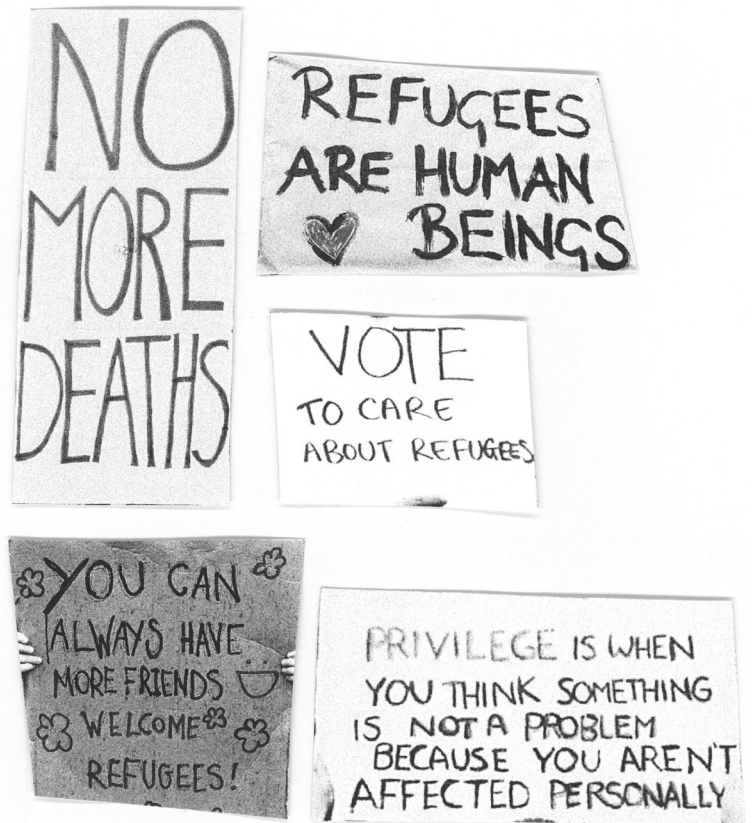 NO
MORE
DEATHS
REFUGEES
ARE HUMAN
BEINGS
VOTE
TO CARE
ABOUT REFUGEES
YOU CAN
ALWAYS HAVE
MORE FRIENDS
WELCOME
REFUGEES!
PRIVILEGE IS WHEN
YOU THINK SOMETHING
IS NOT A PROBLEM
BECAUSE YOU AREN'T
AFFECTED PERSONALLY